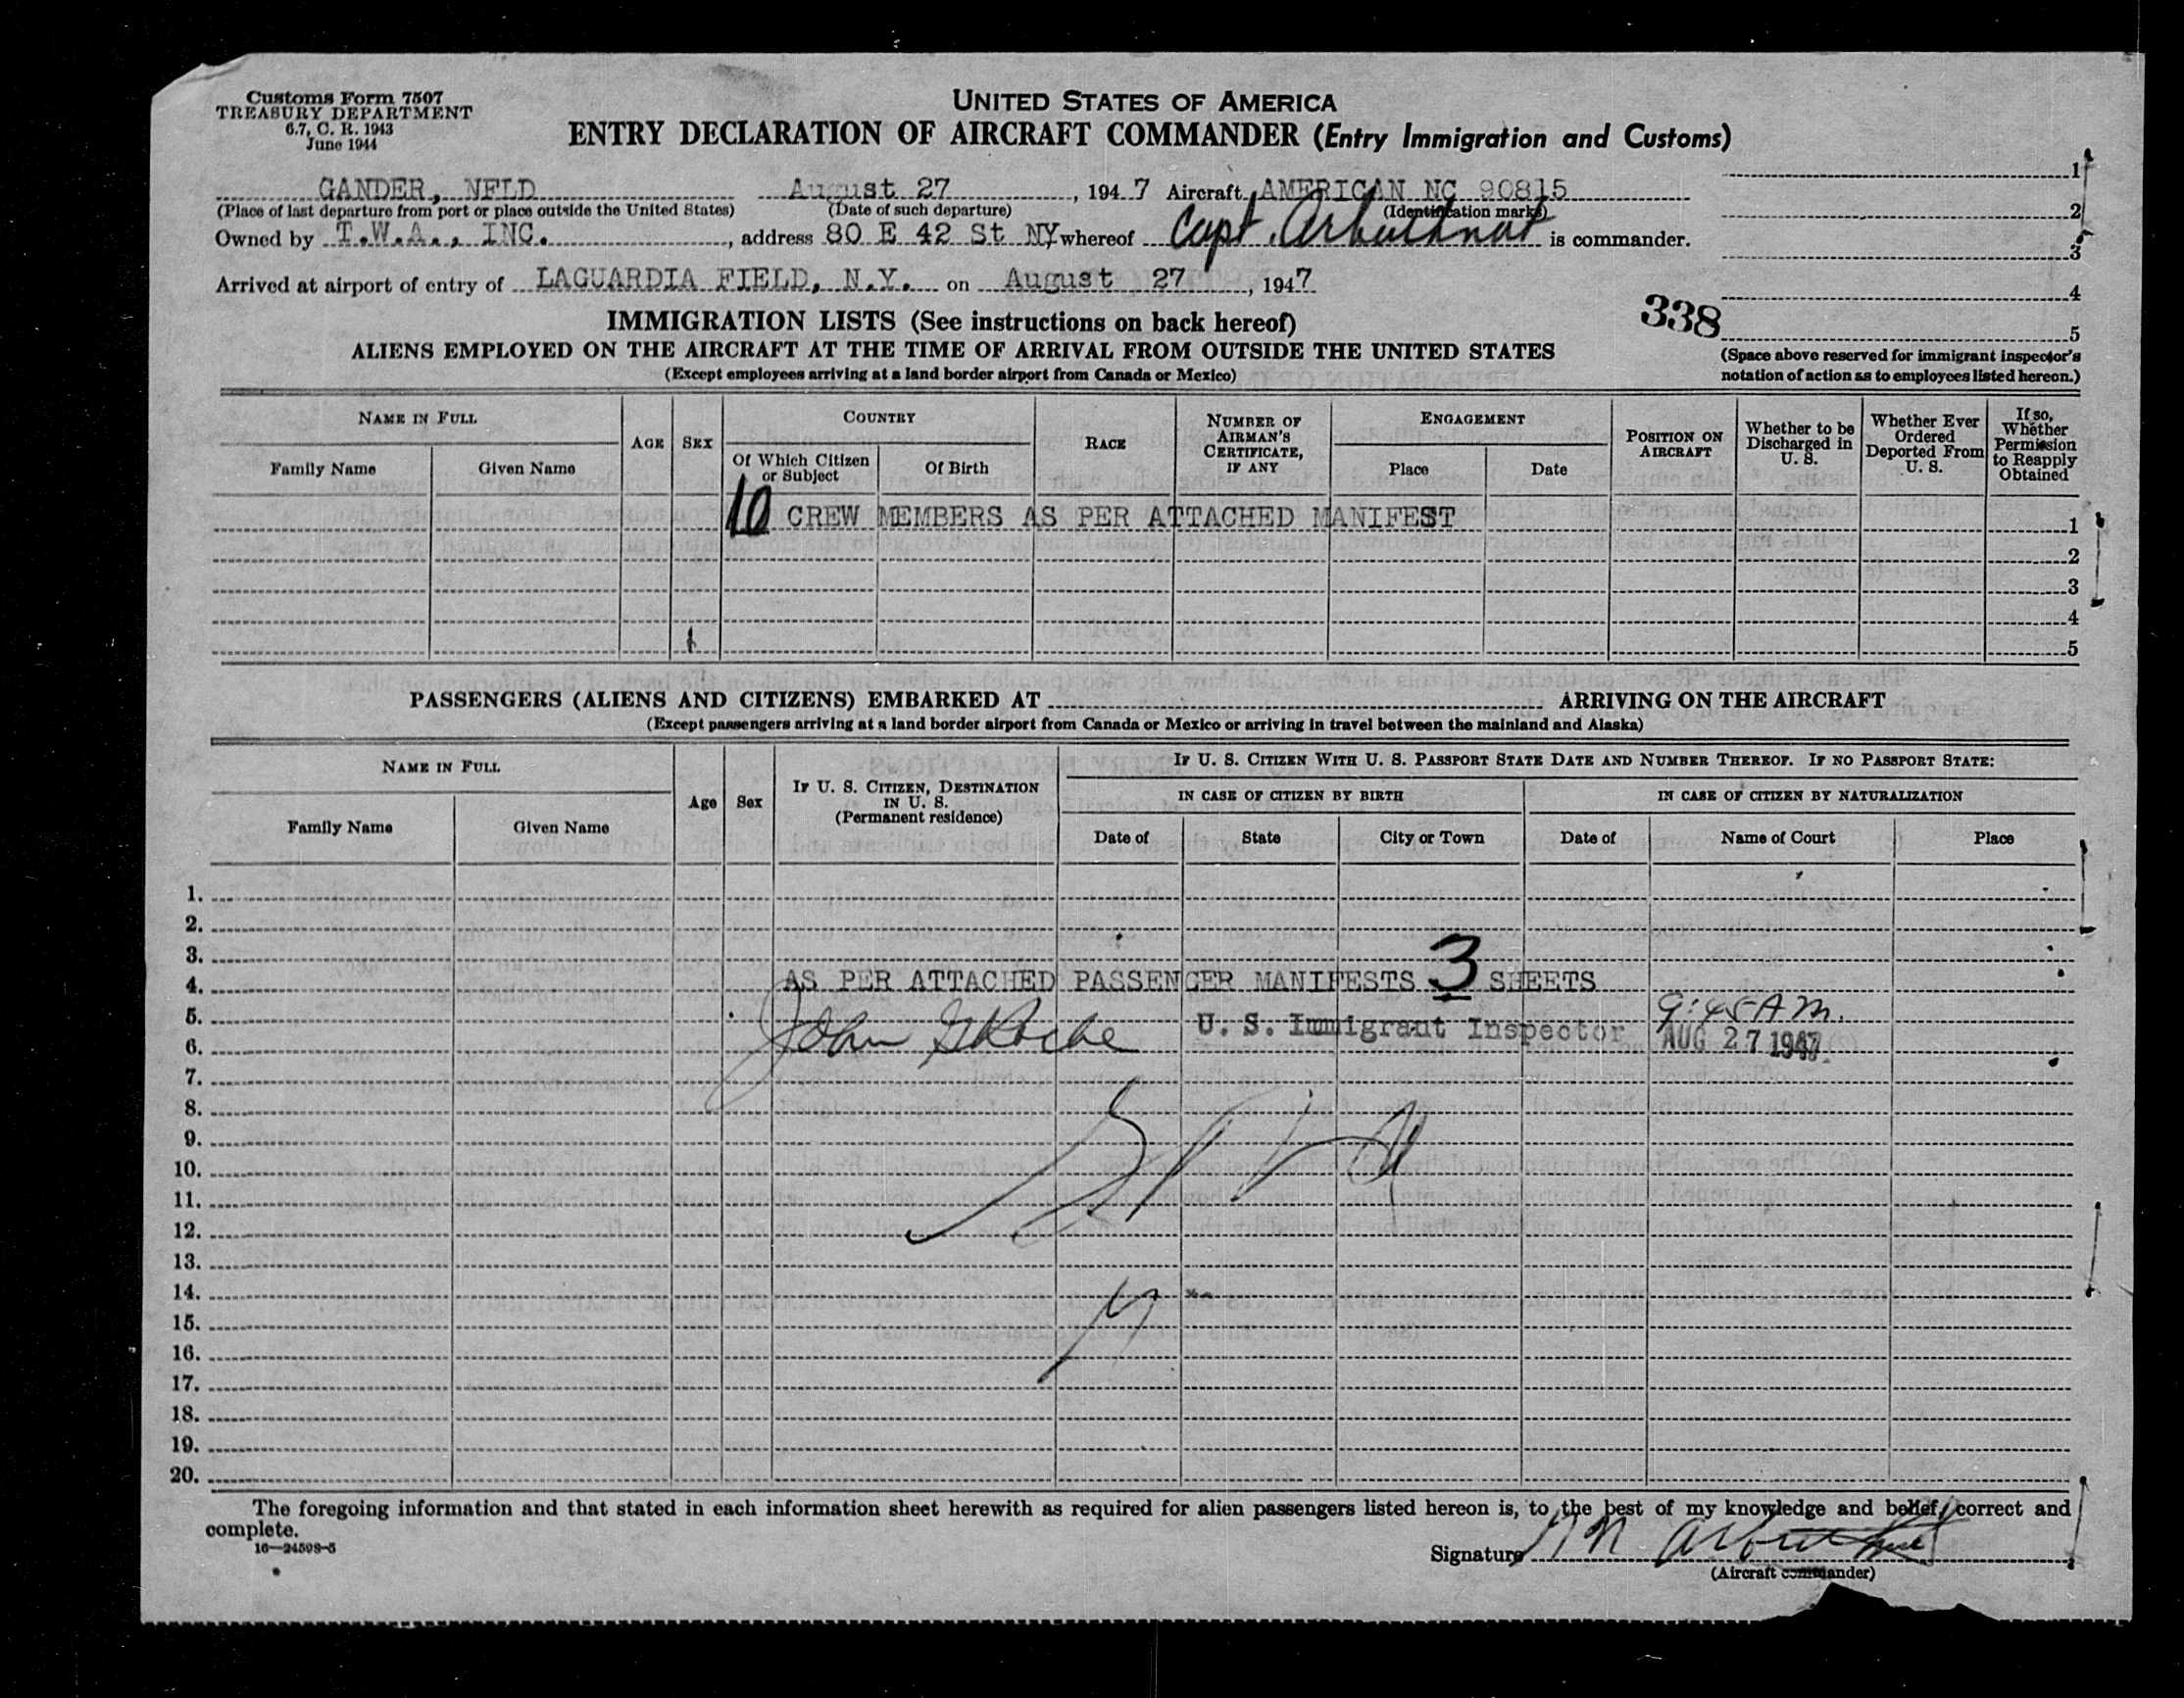 Customs Form 7507
TREASURY DEPARTMENT
6.7, C. R. 1943
June 1944
UNITED STATES OF AMERICA
ENTRY DECLARATION OF AIRCRAFT COMMANDER (Entry Immigration and Customs)
GANDER, NFLD August 27, 1947 Aircraft AMERICAN NC 90815
(Place of last departure from port or place outside the United States) (Date of such departure) (Identification marks)
Owned by T.W.A., INC., address 80 E 42 St NY whereof Capt. Arbuthnot is commander.
Arrived at airport of entry of LAGUARDIA FIELD, N.Y. on August 27, 1947
1
2
3
4
5
338
(Space above reserved for immigrant inspector's
notation of action as to employees listed hereon.)
IMMIGRATION LISTS (See instructions on back hereof)
ALIENS EMPLOYED ON THE AIRCRAFT AT THE TIME OF ARRIVAL FROM OUTSIDE THE UNITED STATES
(Except employees arriving at a land border airport from Canada or Mexico)
NAME IN FULL
Family Name Given Name
AGE SEX
COUNTRY
Of Which Citizen or Subject Of Birth
RACE
NUMBER OF AIRMAN'S CERTIFICATE, IF ANY
ENGAGEMENT
Place Date
POSITION ON AIRCRAFT
Whether to be Discharged in U. S.
Whether Ever Ordered Deported From U. S.
If so, Whether Permission to Reapply Obtained
10 CREW MEMBERS AS PER ATTACHED MANIFEST 1
2
3
4
5
PASSENGERS (ALIENS AND CITIZENS) EMBARKED AT ARRIVING ON THE AIRCRAFT
(Except passengers arriving at a land border airport from Canada or Mexico or arriving in travel between the mainland and Alaska)
NAME IN FULL
Family Name Given Name
Age Sex
IF U. S. CITIZEN, DESTINATION IN U. S. (Permanent residence)
IF U. S. CITIZEN WITH U. S. PASSPORT STATE DATE AND NUMBER THEREOF. IF NO PASSPORT STATE:
IN CASE OF CITIZEN BY BIRTH IN CASE OF CITIZEN BY NATURALIZATION
Date of State City or Town Date of Name of Court Place
1.
2.
3.
4. AS PER ATTACHED PASSENGER MANIFESTS 3 SHEETS
5. John Roche U. S. Immigrant Inspector 9:45 A M.
6. AUG 27 1947
7.
8.
9.
10.
11.
12.
13.
14.
15.
16.
17.
18.
19.
20.
The foregoing information and that stated in each information sheet herewith as required for alien passengers listed hereon is, to the best of my knowledge and belief, correct and
complete.
16—24598-5
Signature Arbuthnot
(Aircraft commander)